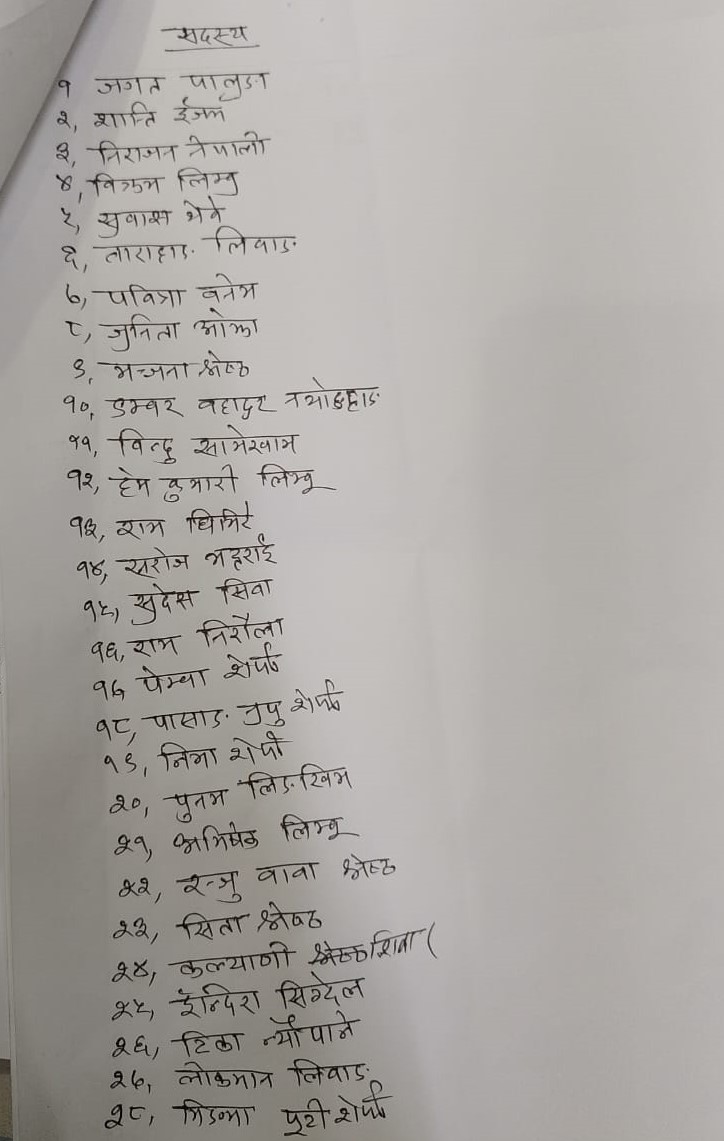 सदस्य
१ जगत पालुङवा
२, शान्ति ईजम
३, निराजन नेपाली
४, विक्रम लिम्बु
५, सुवास थेवे
६, ताराहाङ लिवाङ
७, पवित्रा वनेम
८, जुनिता ओझा
९, मञ्जना श्रेष्ठ
१०, डम्वर वहादुर
११, विन्दु आमेखाम
१२, हेम कुमारी लिम्बू
१३, राम घिमिरे
१४, सरोज भट्टराई
१५, सुदेस सिवा
१६, राम निरौला
१७ पेम्वा शेर्पा
१८, पासाङ नुपु शेर्पा
१९, निमा शेर्पा
२०, पुनम लिङखिम
२१, अभिषेक लिम्बू
२२, रन्जु वावा श्रेष्ठ
२३, सिता श्रेष्ठ
२४, कल्याणी शिवा
२५, ईन्दिरा सिग्देल
२६, टिका न्यौपाने
२७, लोकमान लिवाङ
२८, मिङमा पुटी शेर्पा